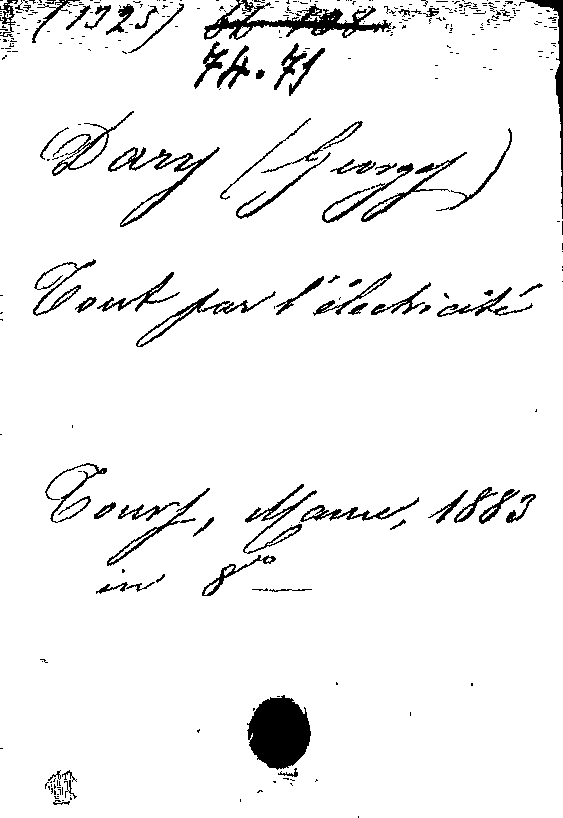 (1325)
74.71
Dary (Georges)
Tout par l'électricité
Tours, Mame, 1883
in 8º